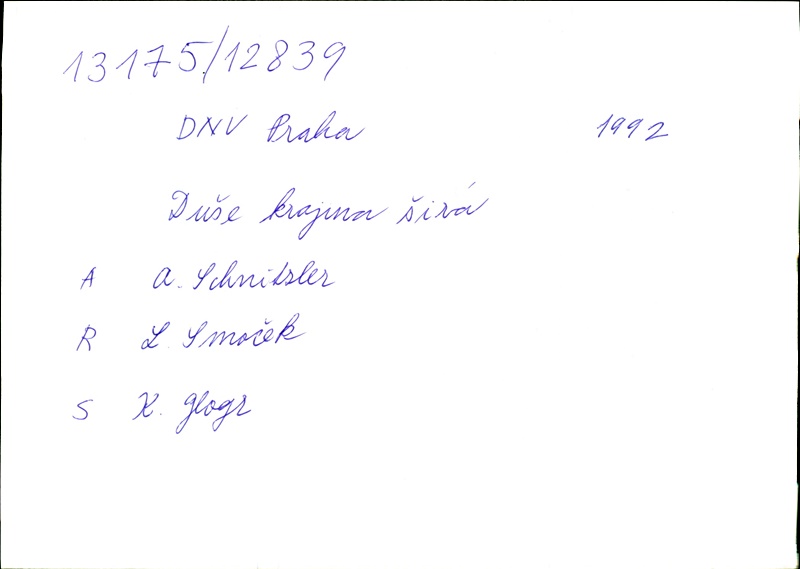 13175/12839
DNV Praha 1992
Duše krajina širá
A A. Schnitzler
R L. Smoček
S K. Glogr